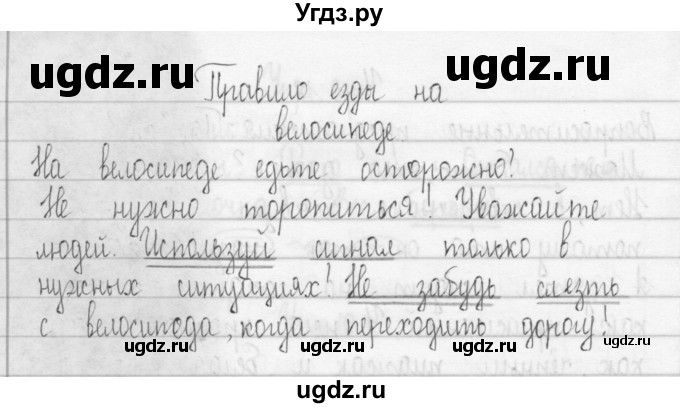 Угдз.ру
ugdz.ru
ugdz.ru
Правило езды на
велосипеде
На велосипеде едьте осторожно!
Не нужно торопиться! Уважайте
людей. Используй сигнал только в
нужных ситуациях! Не забудь слезть
с велосипеда, когда переходить дорогу!
ugdz.ru
ugdz.ru
ugdz.ru
ugdz.ru